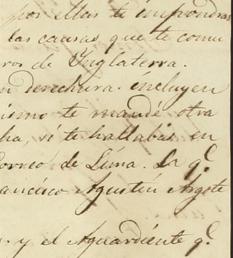 por ellas te impondras
las causas, que te comu
ros de Ynglaterra.
n derechura. incluyen
ismo te mandé otra
ha, si te hallabas en
Correo de Lima. la q.^e
ancisco Agustin Argote
y el Aguardiente q.^e